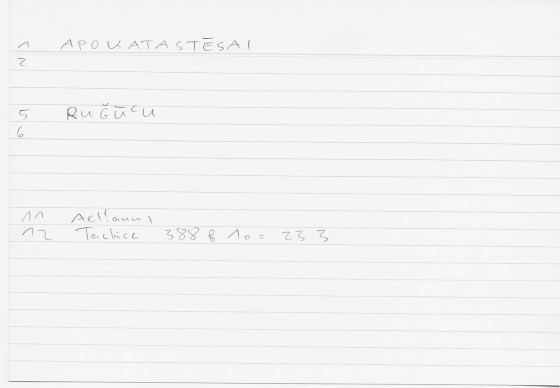 1 APOKATASTĒSAI
2
5 RUǦŪʿU
6
11 Aelianus
12 Tactica 388 B 10 = 23 3